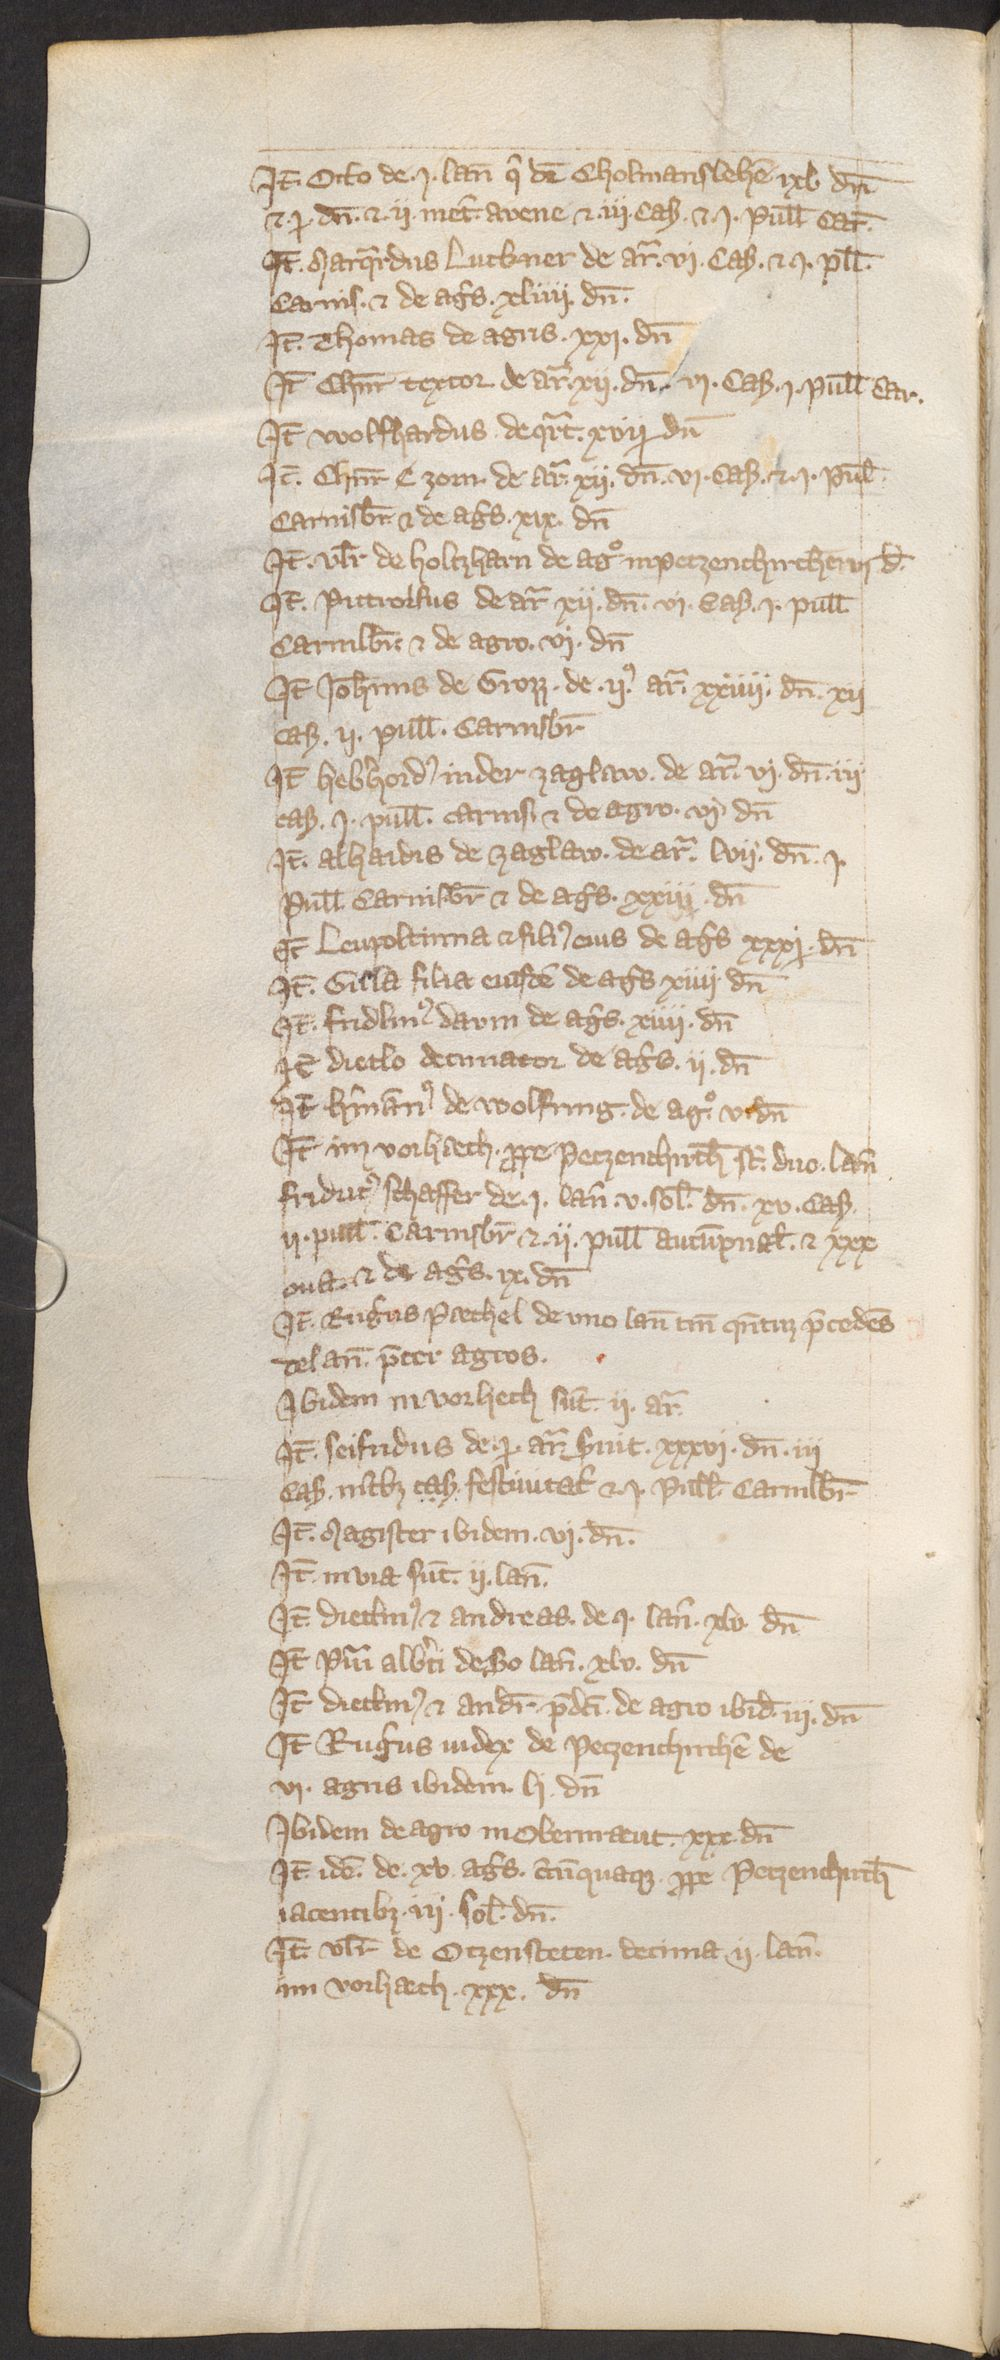 Jt̄. Otto de .j. lan̄ q̄ dr̄ Cholmanslehē ixl dn̄
⁊ .j. dn̄. ⁊ .ij. met̄. avene ⁊ .iij. Cas. ⁊ .j. pull Car̄.
Jt̄. Marq̄rdus Luckner de ar̄. vi. Cas. ⁊ .j. pll̄.
Carnis. ⁊ de ag̃s. xliiij. dn̄.
Jt̄. Thomas de agris. xxj. dn̄
Jt̄ Chnr̄ textor de ar̄. xij. dn̄. vj. Cas. j. pull̄ Car.
Jt̄ wolfhardus de qr̄t. xvij dn̄
Jt̄. Chnr̄ C zorn de ar̄. xij. dn̄. vj. Cas. ⁊ .j. pul̄.
Carnisbr̄. ⁊ de ag̃s. xix. dn̄
Jt̄. vlr̄ de holtzharn de agͦ inpetzenchirchen vj d̄.
Jt̄. Pittrolfus de ar̄ xij. dn̄. vj. Cas. j. pull̄
Carnisbr̄. ⁊ de agro. vj. dn̄
Jt̄ Joh̄nns de Grozz. de .ijꝰ. ar̄. xxiiij. dn̄. xij
cas. ij. pull̄. Carnisbr̄
Jt̄ heb̄hordꝰ inder zaglaw. de ar̄. vj. dn̄. iij
cas. j. pull̄. carnis. ⁊ de agro. vj dn̄
Jt̄. alhaidis de zaglaw. de ar̄. lvij. dn̄. j.
pull̄ Carnisbr̄ ⁊ de ag̃s. xxiij. dn̄
Jt̄ Leupoltinna ⁊ filiꝰ eius de ag̃s xxxj. dn̄
Jt̄. Gisla filia eiusdē de ag̃s xiiij dn̄
Jt̄. fridlinꝰ darm de ag̃s. xiiij. dn̄
Jt̄ dietlo decimator de ag̃s. ij. dn̄
Jt̄ h̄mānꝰ de wolfring. de agͦ. v dn̄
Jt̄ im vorhaech. ꝓpe petzenchirch̄ st̄. duo. lan̄
fridricꝰ schaffer de .j. lan̄. v. sol̄. dn̄. xv. Cas.
ij. pull̄. Carnisbr̄ ⁊ .ij. pull̄ autūpnal̄. ⁊ xxx
oua. ⁊ de ag̃s. ix. dn̄
Jt̄. Rufus Paethel de vno lan̄ tm̄ qn̄tuꝫ p̄cedēs
de lan̄. p̄ter agros.
Jbidem in vorhech sūt. ij. ar̄.
Jt̄. seifridus de .j. ar̄. s̄uit. xxxvj. dn̄. iij
Cas. in tbꝫ cas. festiuitat̄ ⁊ .j. pull̄. Carnisbr̄
Jt̄. Magister ibidem. vj. dn̄.
Jt̄. in via sūt. ij. lan̄.
Jt̄. dietlinꝰ ⁊ andreas. de .j. lan̄. xlv. dn̄
Jt̄ puri alb̄ti de so lan̄. xlv. dn̄
Jt̄ dietlinꝰ ⁊ andr̄. p̄dc̄i. de agro ibid̄. iij. dn̄
Jt̄ Rufus iudex de petzenchirchē de
vj. agris ibidem. lj. dn̄
Jbidem de agro in Obernraeut. xxx. dn̄
Jt̄ idē. de. xv. ag̃s. cūquaqꝫ. ꝓpe Petzenchirch̄
iacentibꝫ. iij. sol̄. dn̄.
Jt̄. vlr̄ de Otzensteten. decima ij. lan̄.
im vorhaech. xxx. dn̄